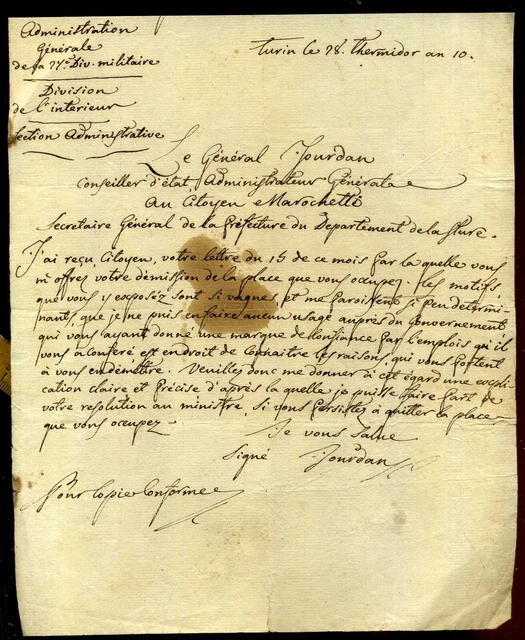 Administration
Générale
de la 27.e Div. militaire
Division
de l'interieur
Section Administrative
Turin le 28. thermidor an 10.
Le Général Jourdan
Conseiller d'état, Administrateur Général
au Citoyen Marochetti
Secretaire Général de la Préfecture du Departement de la Sture.
J'ai reçu, Citoyen, votre lettre du 15 de ce mois par la quelle vous
m'offres votre démission de la place que vous occupez. Les motifs
que vous y exposéz sont si vagues, et me paroissent si peu determi-
nants, que je ne puis en faire aucun usage auprès du Gouvernement
qui vous ayant donné une marque de Confiance par l'emplois qu'il
vous à conferé est en droit de Connaitre les raisons, qui vous portent
à vous en démettre. Veuilles donc me donner à cet égard une expli-
cation claire et Précise d'après la quelle je puisse faire part de
votre resolution au ministre, si vous persistez à quitter la place
que vous occupez.
Je vous Salue
Signé Jourdan
Pour Copie Conforme